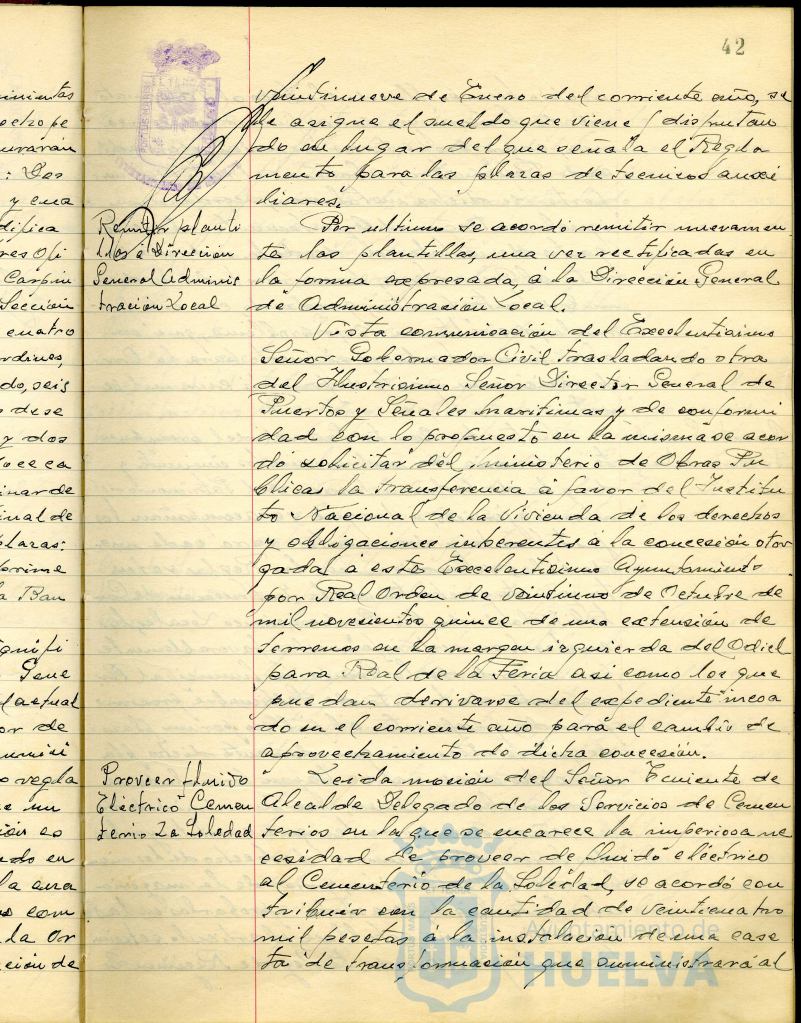 42
mientos
pecto pe
urarán
: Dos
y cua
difica
res Ofi
Carpin
Sección
cuatro
rdines,
do, seis
s de se
y dos
oce ca
inar de
inal de
plazas:
prime
a Ban
ignifi
Gene
l actual
or de
o regla
e un
ción es
ado en
la cua
com
da Or
ción de
veintinueve de Enero del corriente año, se
le asigne el sueldo que viene disfrutan
do en lugar del que señala el Regla
mento para las plazas de tecnicos auxi
liares.
Remitir planti
llas a Dirección
General Adminis
tración Local
Por ultimo se acordó remitir nuevamen
te las plantillas, una vez rectificadas en
la forma expresada, á la Dirección General
de Administración Local.
Vista comunicación del Excelentisimo
Señor Gobernador Civil trasladando otra
del Ilustrisimo Señor Director General de
Puertos y Señales Maritimas y de conformi
dad con lo propuesto en la misma se acor
dó solicitar del Ministerio de Obras Pu
blicas la transferencia á favor del Institu
to Nacional de la Vivienda de los derechos
y obligaciones inherentes á la concesión otor
gada á este Excelentisimo Ayuntamiento
por Real Orden de veintiuno de Octubre de
mil novecientos quince de una extensión de
terrenos en la margen izquierda del Odiel
para Real de la Feria asi como los que
puedan derivarse del expediente incoa
do en el corriente año para el cambio de
aprovechamiento de dicha concesión.
Proveer fluido
Eléctrico Cemen
terio La Soledad
Leida moción del Señor Teniente de
Alcalde Delegado de los Servicios de Cemen
terios en la que se encarece la imperiosa ne
cesidad de proveer de fluido eléctrico
al Cementerio de la Soledad, se acordó con
tribuir con la cantidad de veinticuatro
mil pesetas á la instalación de una case
ta de transformación que suministrará al
Ayuntamiento de
HUELVA